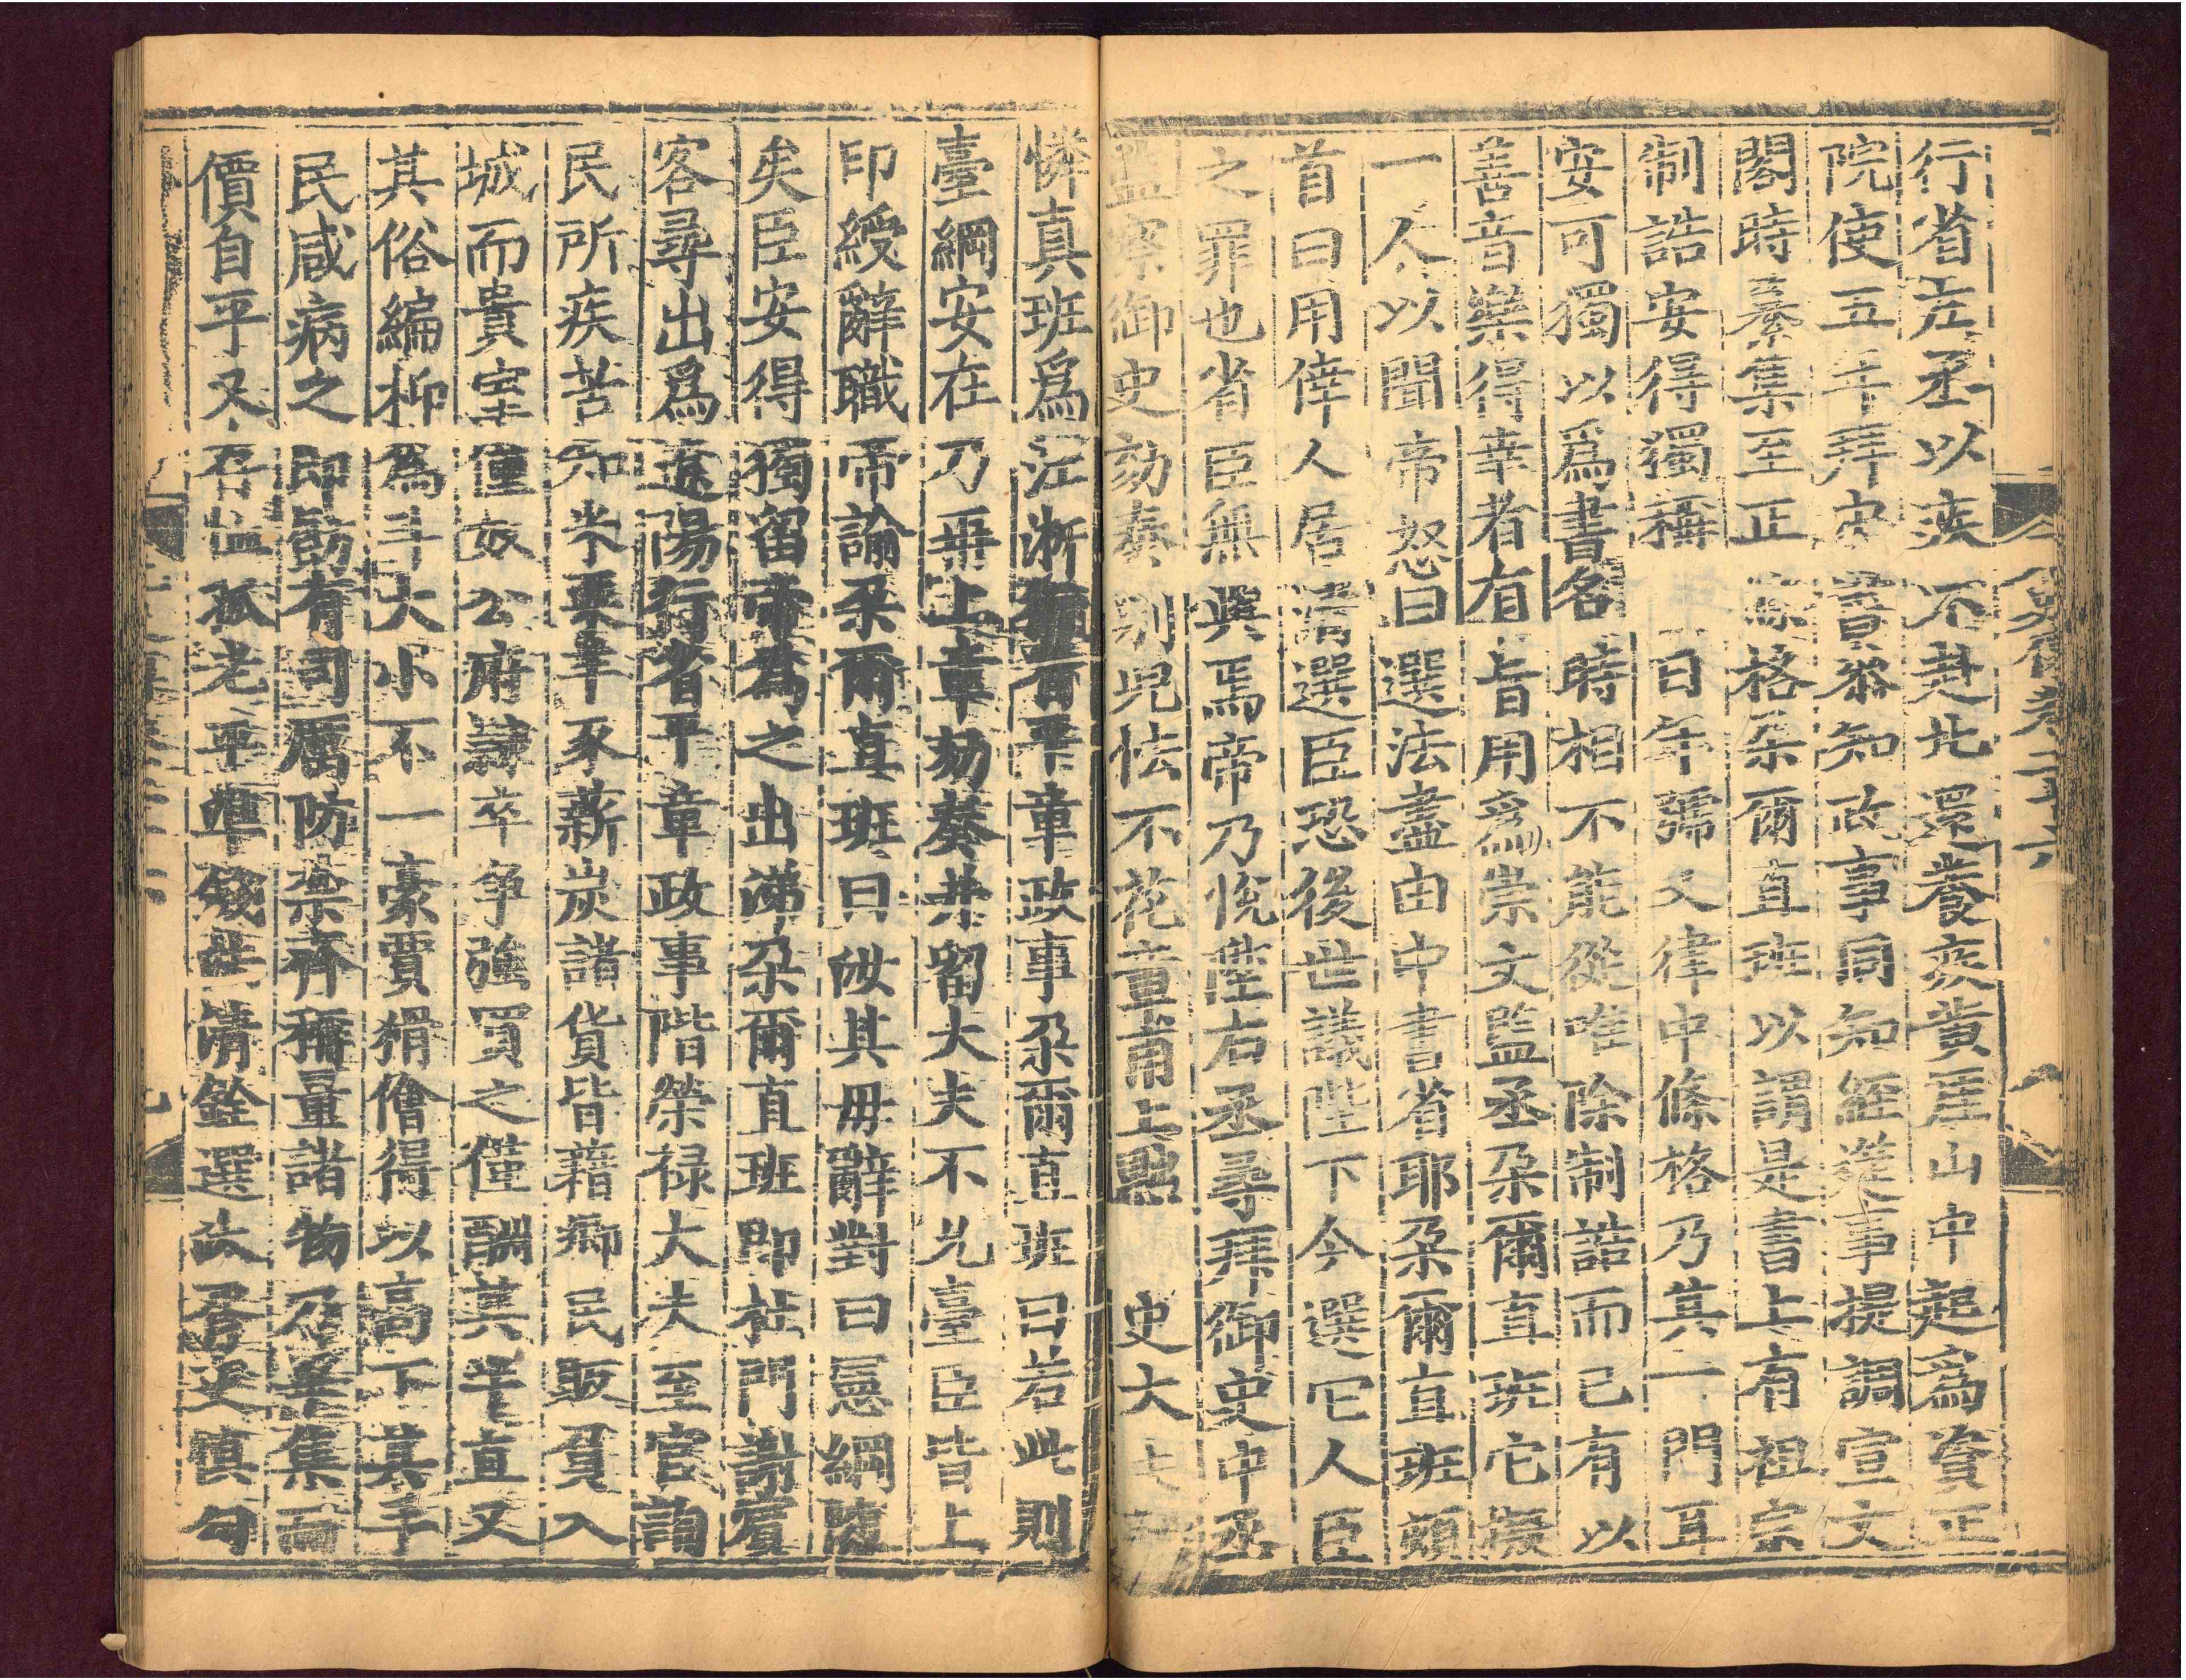 行省左丞以疾不赴北還養疾黄厓山中起爲資正
院使五年拜中書叅知政事同知經筵事提調宣文
閣時纂集至正條格朶爾直班以謂是書上有祖宗
制誥安得獨稱今日年號又律中條格乃其一門耳
安可獨以爲書名時相不能從唯除制誥而已有以
善音樂得幸者有旨用爲崇文監丞朶爾直班它擬
一人以聞帝怒曰選法盡由中書省耶朶爾直班頓
首曰用倖人居清選臣恐後世議陛下今選它人臣
之罪也省臣無與焉帝乃悅陞右丞尋拜御史中丞
監察御史劾奏别兒怯不花章甫上黜御史大夫懿
憐真班爲江浙行省平章政事朶爾直班曰若此則
臺綱安在乃再上章劾奏并留大夫不允臺臣皆上
印綬辭職帝諭朶爾直班曰汝其毋辭對曰憲綱隳
矣臣安得獨留帝爲之出涕朶爾直班即杜門謝賓
客尋出爲遼陽行省平章政事階榮禄大夫至官詢
民所疾苦知米粟羊豕薪炭諸貨皆藉鄉民販負入
城而貴室僮奴公府隸卒争強買之僅酬其半直又
其俗編柳爲斗大小不一豪賈猾儈得以高下其手
民咸病之即飭有司厲防禁齊稱量諸物乃畢集而
價自平又存恤孤老平準錢法清銓選汰胥吏慎勾
史傳卷二十六